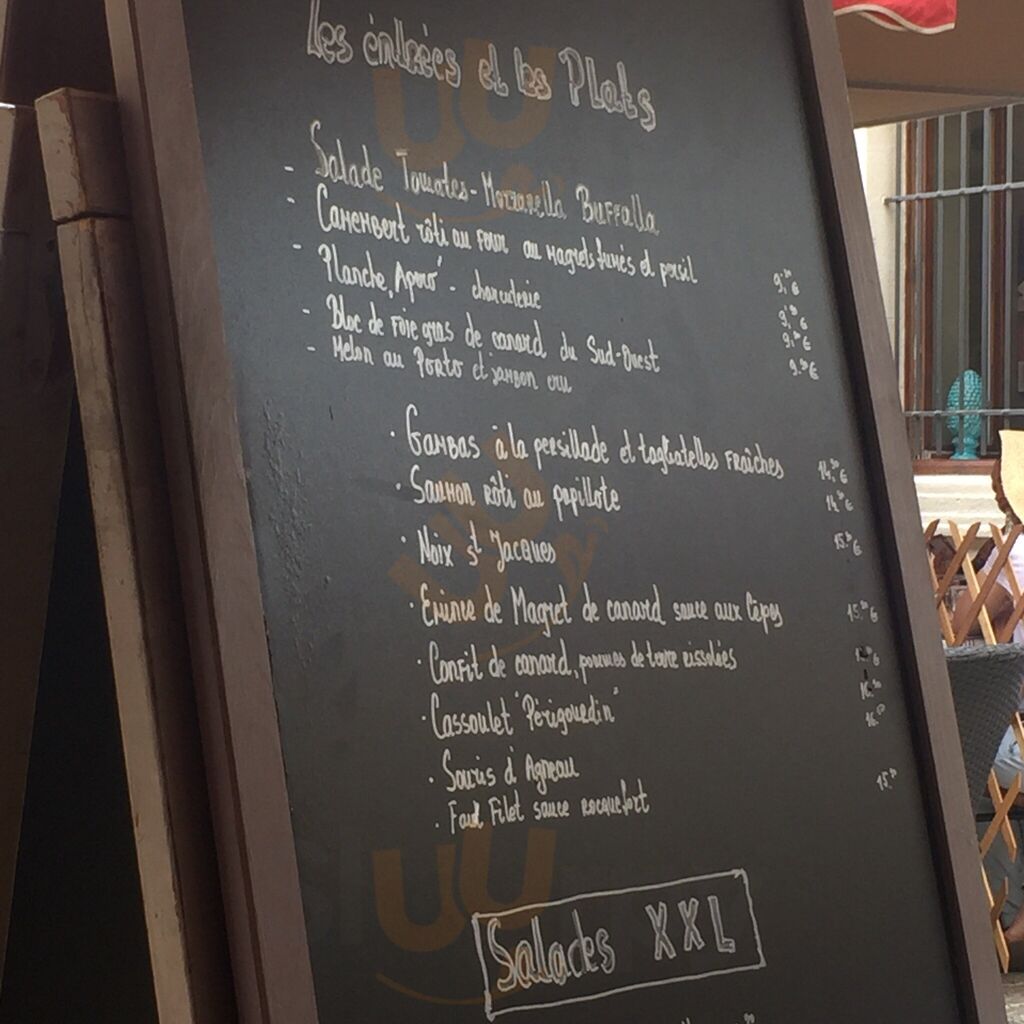 Les entrées et les Plats
- Salade Tomates - Mozzarella Buffalla
- Camembert rôti au four au magrets fumés et persil 9.50 €
- Planche "Apéro" - charcuterie 9.50 €
- Bloc de foie gras de canard du Sud-Ouest 9.50 €
- Melon au Porto et jambon cru 9.50 €
· Gambas à la persillade et tagliatelles fraîches 14.50 €
· Saumon rôti au papillote 14.50 €
· Noix St Jacques 15.50 €
· Emince de Magret de canard sauce aux Cèpes 15.50 €
· Confit de canard, pommes de terre rissolées €
· Cassoulet "Périgourdin" 16.50
· Souris d'Agneau
· Faux Filet sauce rocquefort 15.50
Salades XXL